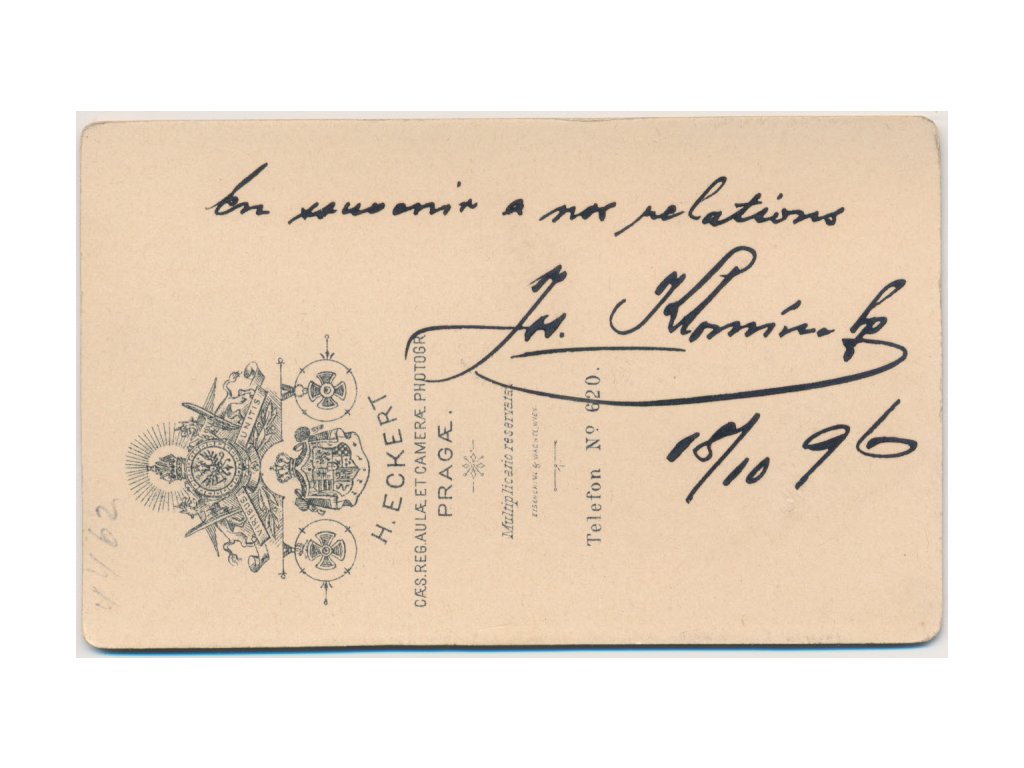 En souvenir a nos relations
Jos.
18/10 96
VIRIBUS UNITIS
H. ECKERT
CÆS. REG. AULÆ ET CAMERÆ PHOTOGR.
PRAGÆ.
Multiplicatio reservata.
Telefon Nº 620.
4462